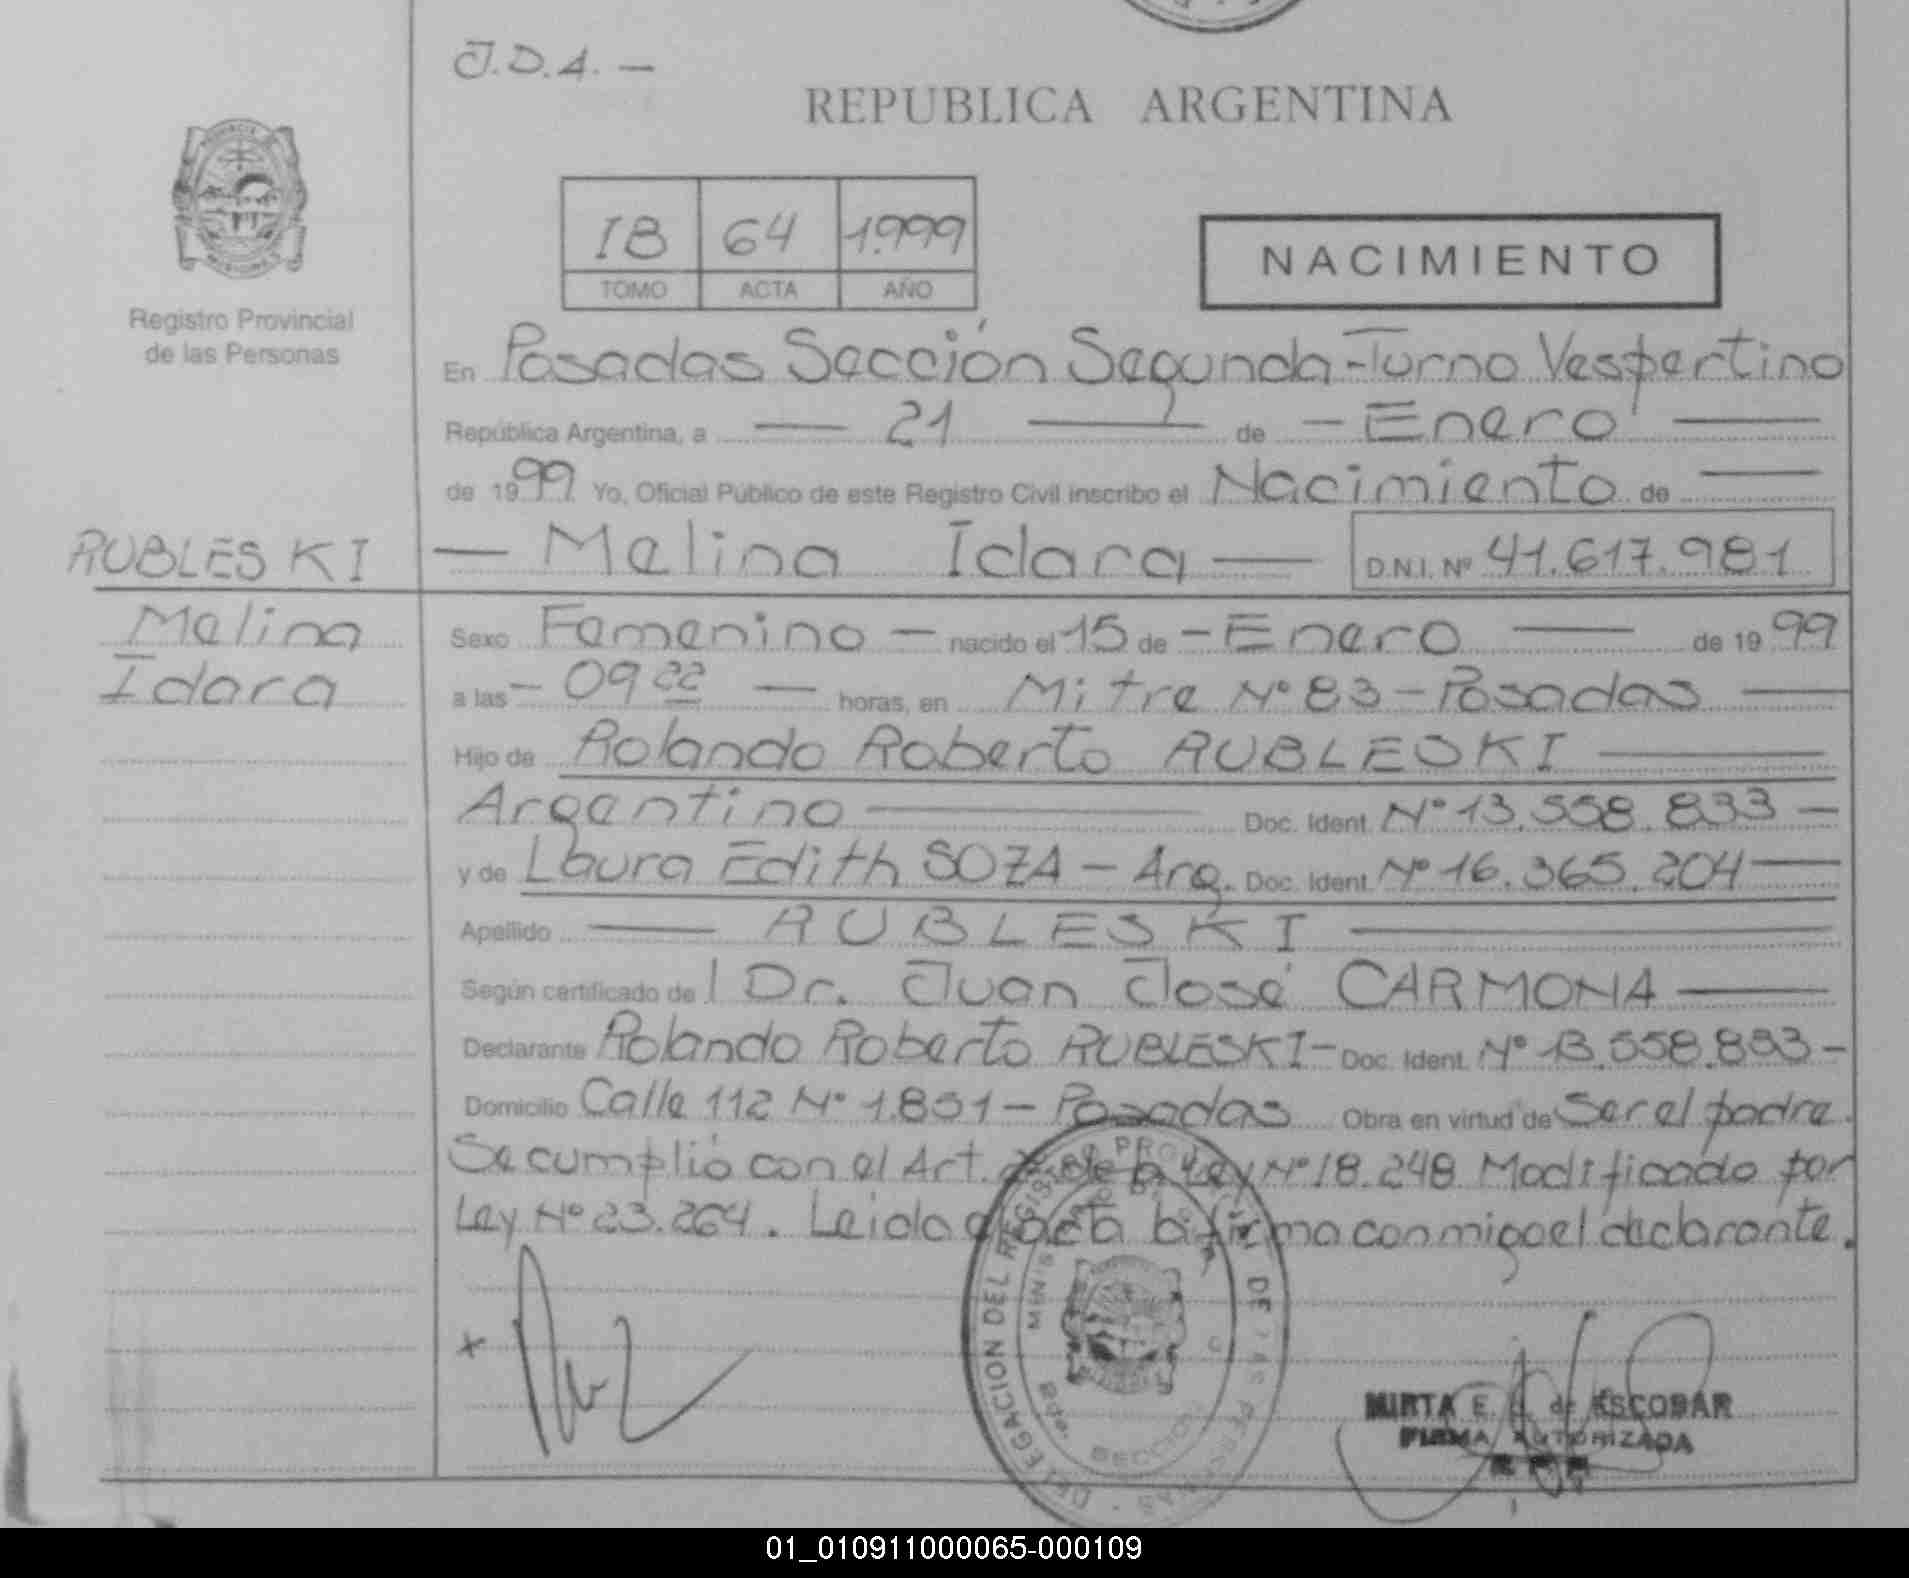 J.D.A. —
REPUBLICA ARGENTINA
IB 64 1.999
TOMO ACTA AÑO
NACIMIENTO
Registro Provincial
de las Personas
En Posadas Sección Segunda - Turno Vespertino
República Argentina, a — 21 — de — Enero —
de 1999 Yo, Oficial Público de este Registro Civil inscribo el Nacimiento de —
RUBLESKI
— Melina Idara — D.N.I. Nº 41.617.981
Melina
Idara
Sexo Femenino — nacido el 15 de — Enero — de 1999
a las — 09 22 — horas, en Mitre Nº 83 - Posadas —
Hijo de Rolando Roberto RUBLESKI —
Argentino — Doc. Ident. Nº 13.558.833 —
y de Laura Edith SOZA - Arg. Doc. Ident. Nº 16.365.204 —
Apellido — RUBLESKI —
Según certificado del Dr. Juan José CARMONA —
Declarante Rolando Roberto RUBLESKI - Doc. Ident. Nº 13.558.833 —
Domicilio Calle 112 Nº 1.851 - Posadas Obra en virtud de Ser el padre.
Se cumplió con el Art. de la Ley Nº 18.248 Modificado por
Ley Nº 23.264. Leida el acta la firma conmigo el declarante.
x
DELEGACION DEL REGISTRO PROVINCIAL DE LAS PERSONAS
SECCION
MIRTA E. de ESCOBAR
FIRMA AUTORIZADA
01_010911000065-000109